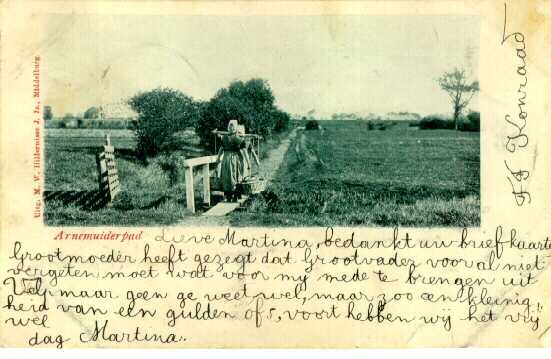 Uitg. M. V. Hildernisse J. Jz., Middelburg
F J Konraad
Arnemuiderpad
Lieve Martina, bedankt uw briefkaarte
Grootmoeder heeft gezegt dat Grootvader voor al niet
vergeten moet wat voor my mede te brengen uit
Velp, maar geen ge weet wel, maar zoo een kleinig,
heid van een gulden of 5, voort hebben wij het vrij
wel
dag Martina.